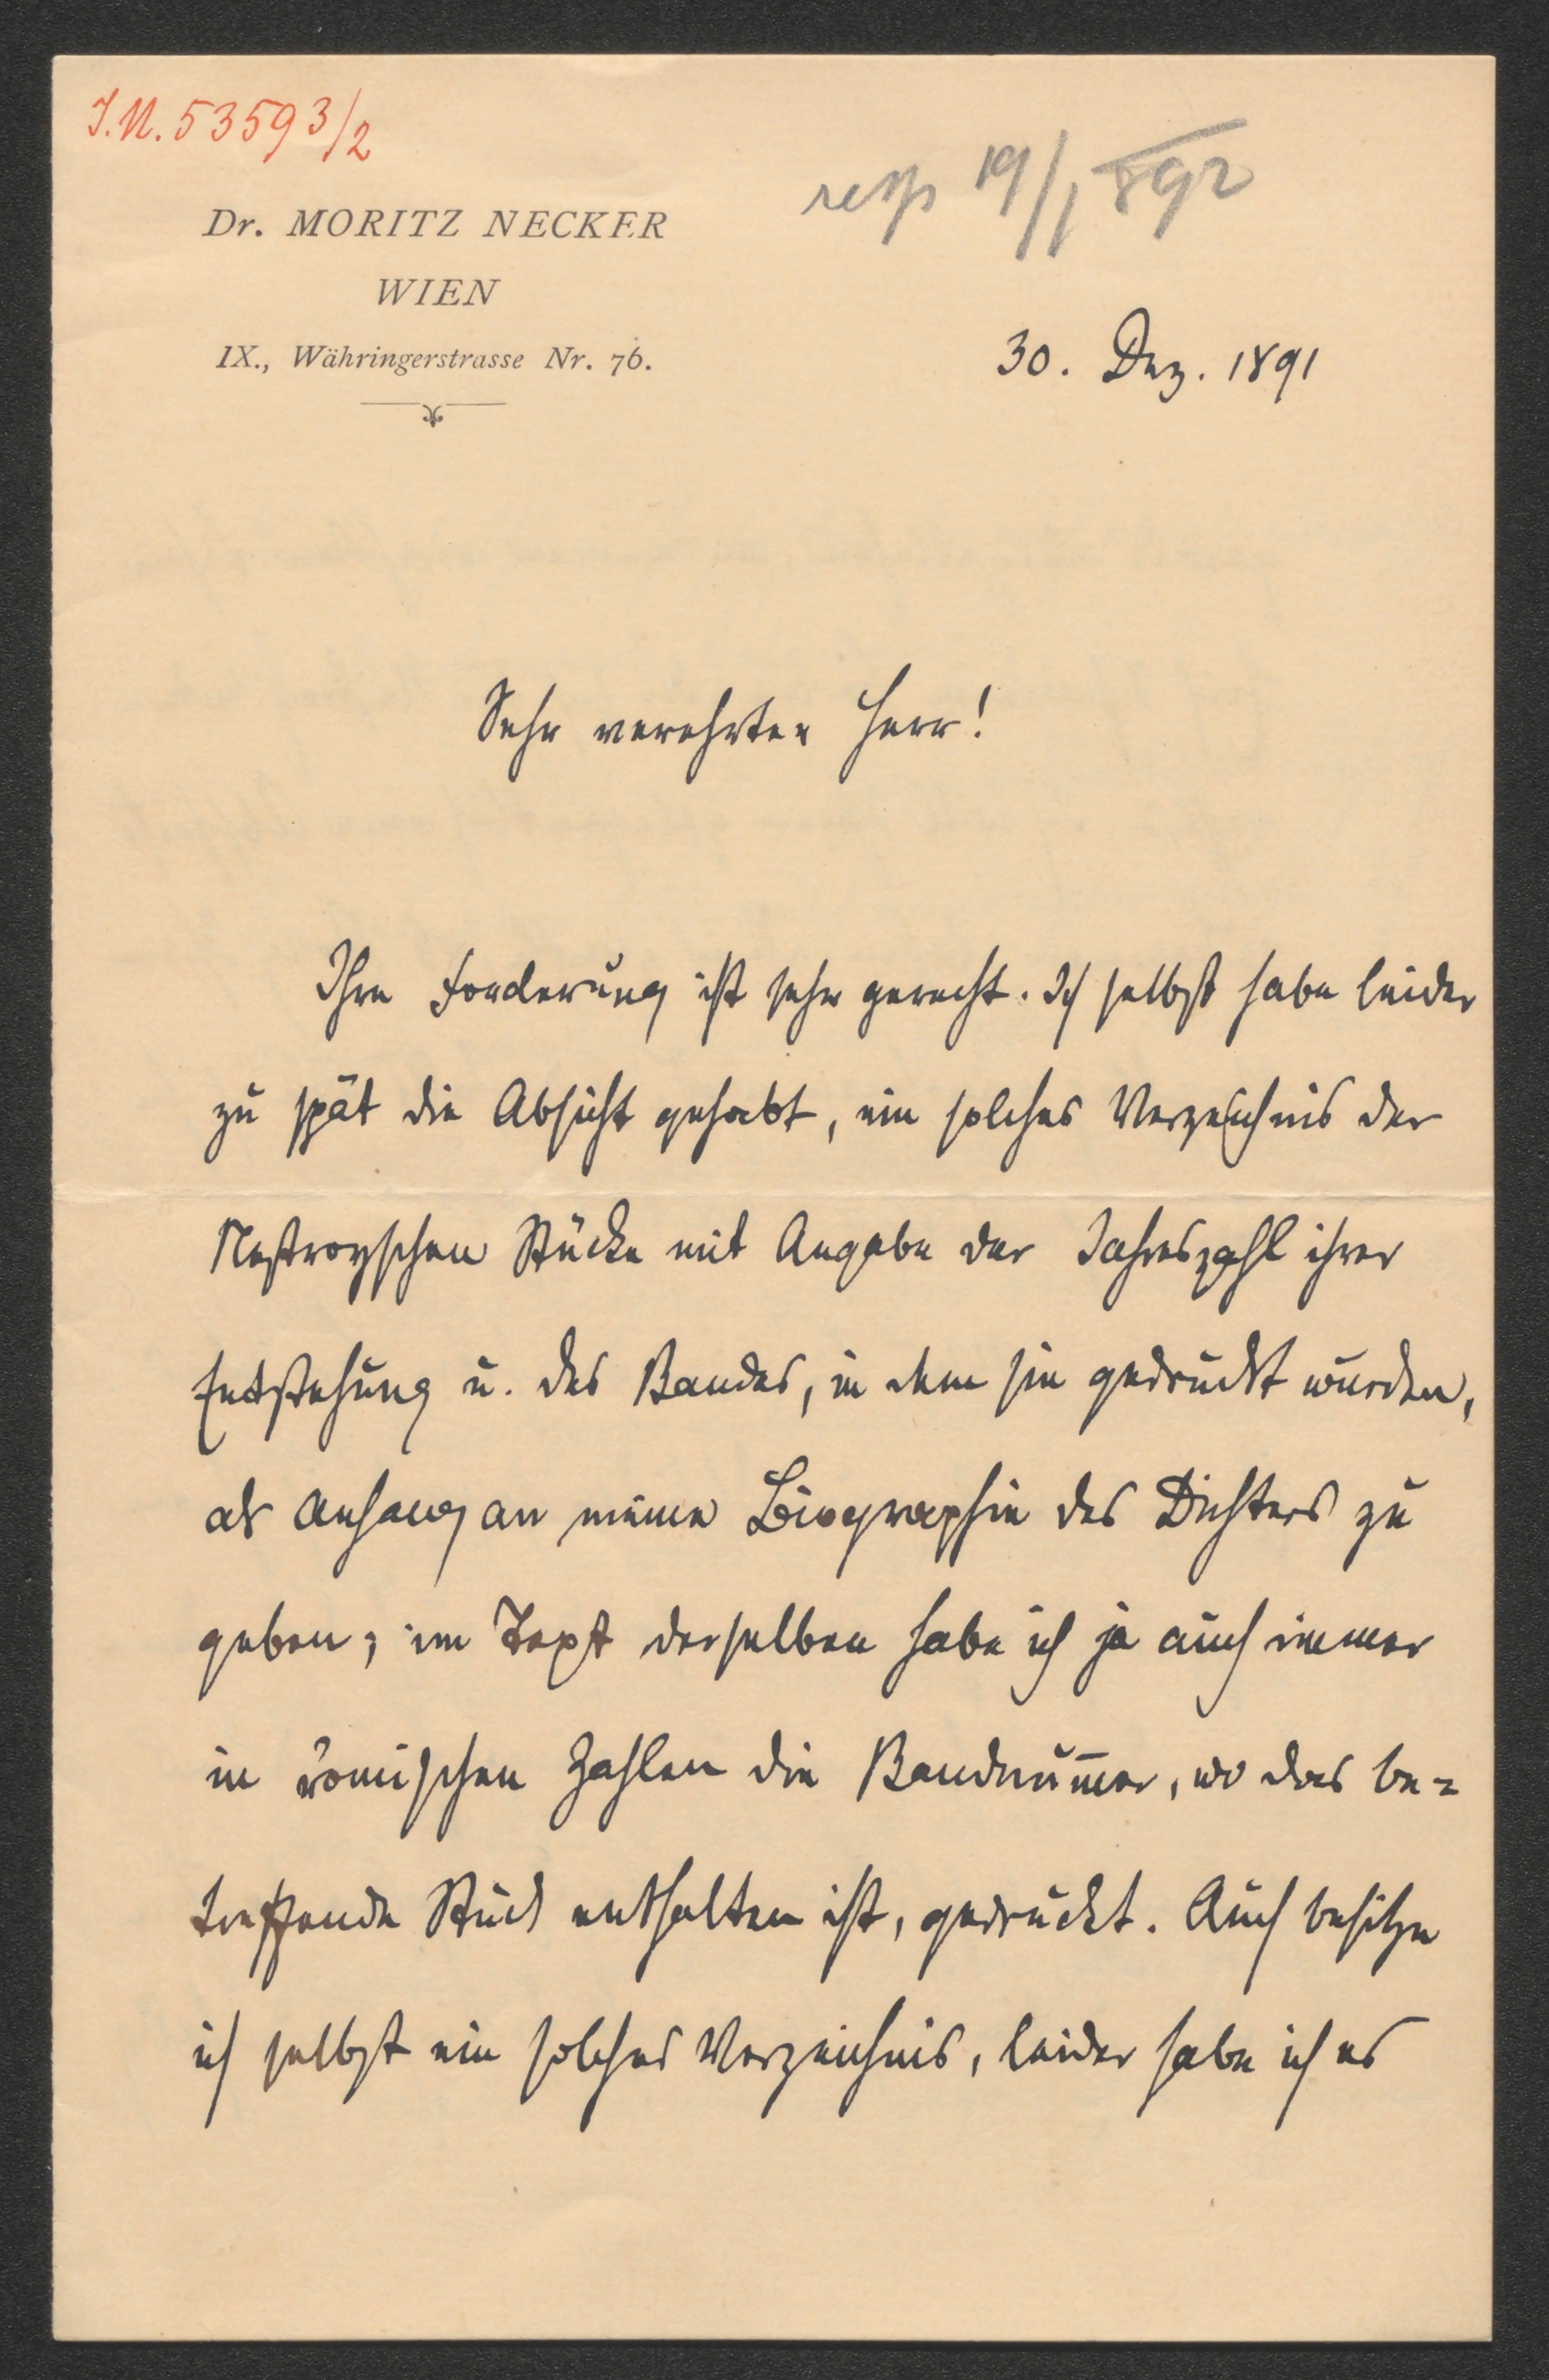 J.N. 53593/2
resp 19/1 892
Dr. MORITZ NECKER
WIEN
IX., Währingerstrasse Nr. 76.
30. Dez. 1891
Sehr verehrter Herr!
Ihre Forderung ist sehr gerecht. Ich selbst habe leider
zu spät die Absicht gehabt, ein solches Verzeichnis der
Nestroyschen Stücke mit Angabe der Jahreszahl ihrer
Entstehung u. des Bandes, in dem sie gedruckt wurden,
als Anhang an meine Biographie des Dichters zu
geben; im Text derselben habe ich ja auch immer
in römischen Zahlen die Bandnum̅er, wo das be=
treffende Stück enthalten ist, gedruckt. Auch besitze
ich selbst ein solches Verzeichnis, leider habe ich es